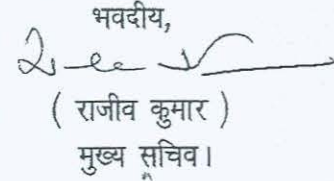 भवदीय,
( राजीव कुमार )
मुख्य सचिव।